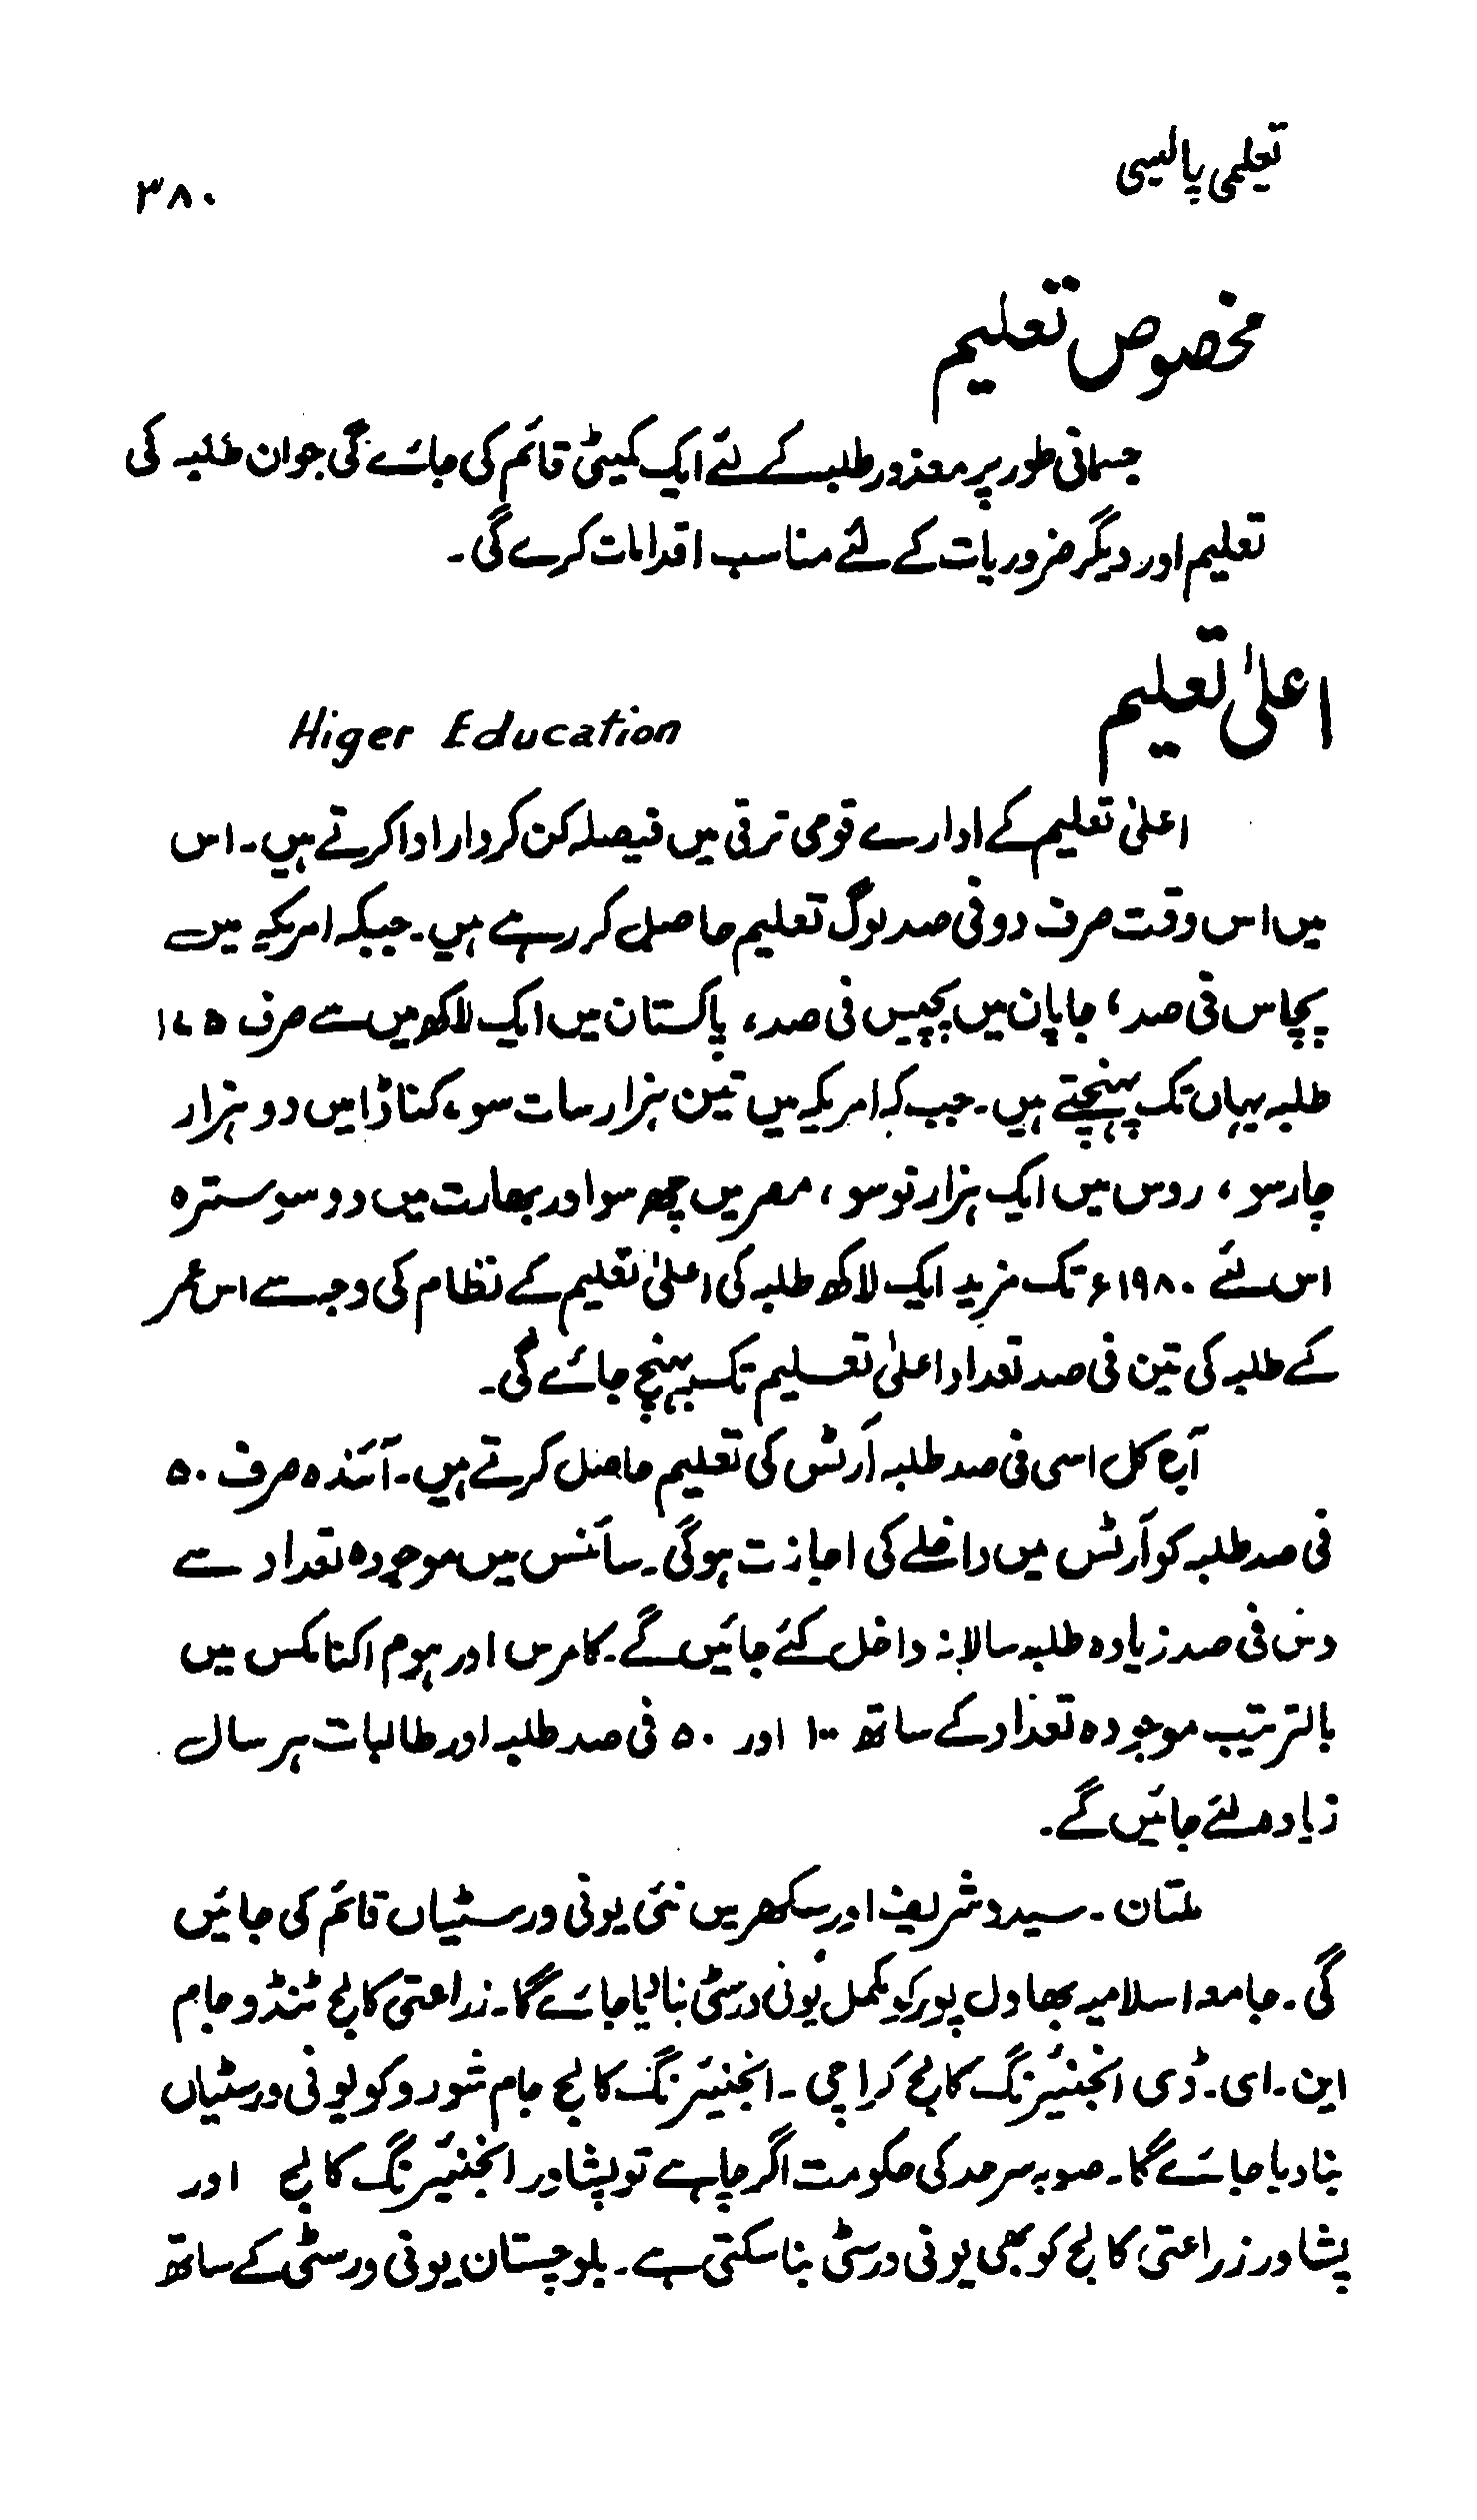 تعلیمی پالیسی
۳۸۰
مخصوص تعلیم
جسمانی طور پر معذور طلبہ کے لئے ایک کمیٹی قائم کی جائے گی جو ان طلبہ کی
تعلیم اور دیگر ضروریات کے لئے مناسب اقدامات کرے گی۔
اعلیٰ تعلیم
Higer Education
اعلیٰ تعلیم کے ادارے قومی ترقی میں فیصلہ کن کردار ادا کرتے ہیں۔ اس
میں اس وقت صرف دو فی صد لوگ تعلیم حاصل کر رہے ہیں۔ جبکہ امریکہ میں
پچاس فی صد، جاپان میں پچیس فی صد، پاکستان میں ایک لاکھ میں سے صرف ۱۷۵
طلبہ یہاں تک پہنچتے ہیں۔ جب کہ امریکہ میں تین ہزار سات سو، کناڈا میں دو ہزار
چار سو، روس میں ایک ہزار نو سو، مصر میں چھ سو اور بھارت میں دو سو سترہ
اس لئے ۱۹۸۰ء تک مزید ایک لاکھ طلبہ کی اعلیٰ تعلیم کے نظام کی وجہ سے اس عمر
کے طلبہ کی تین فی صد تعداد اعلیٰ تعلیم تک پہنچ جائے گی۔
آج کل اسی فی صد طلبہ آرٹس کی تعلیم حاصل کرتے ہیں۔ آئندہ صرف ۵۰
فی صد طلبہ کو آرٹس میں داخلے کی اجازت ہوگی۔ سائنس میں موجودہ تعداد سے
دس فی صد زیادہ طلبہ سالانہ داخل کئے جائیں گے۔ کامرس اور ہوم اکنامکس میں
بالترتیب موجودہ تعداد کے ساتھ ۱۰۰ اور ۵۰ فی صد طلبہ اور طالبات ہر سال
زیادہ لئے جائیں گے۔
ملتان۔ سیدو شریف اور سکھر میں نئی یونی ورسٹیاں قائم کی جائیں
گی۔ جامعہ اسلامیہ بھاول پور کو مکمل یونی ورسٹی بنا لیا جائے گا۔ زراعتی کالج ٹنڈو جام
این۔ ای۔ ڈی انجنئیرنگ کالج کراچی۔ انجنئیرنگ کالج جام شورو کو یونی ورسٹیاں
بنا دیا جائے گا۔ صوبہ سرحد کی حکومت اگر چاہے تو پشاور انجنئیرنگ کالج اور
پشاور زراعتی کالج کو بھی یونی ورسٹی بنا سکتی ہے۔ بلوچستان یونی ورسٹی کے ساتھ